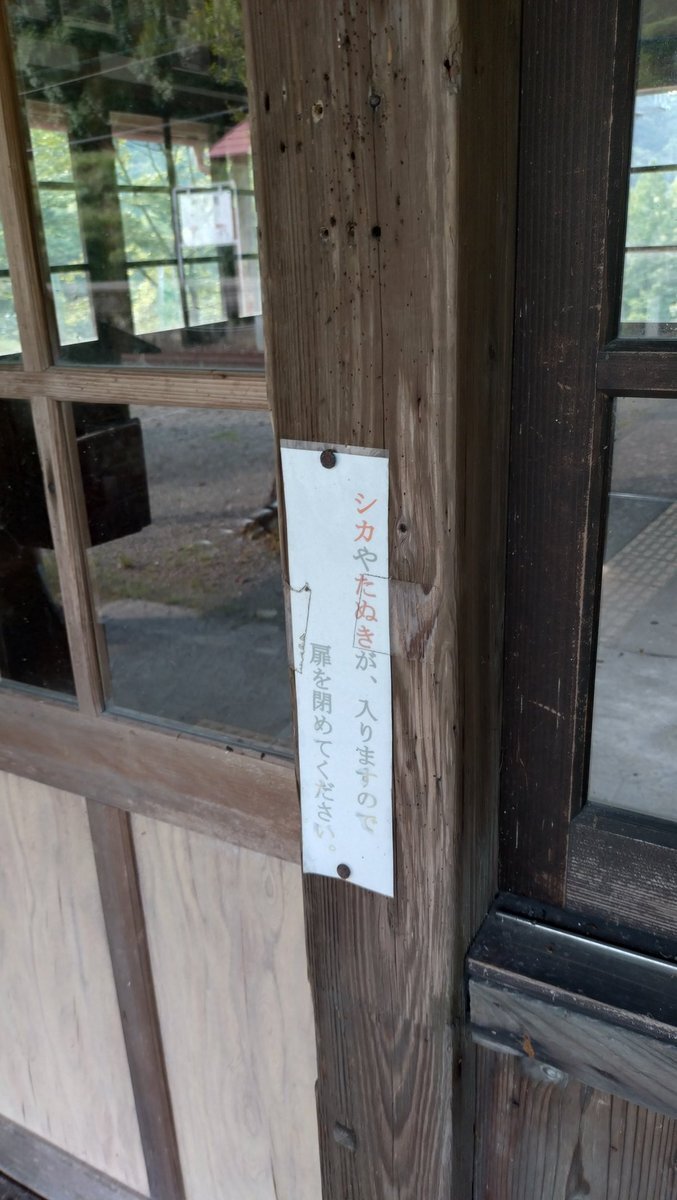 シカやたぬきが、入りますので
扉を閉めてください。